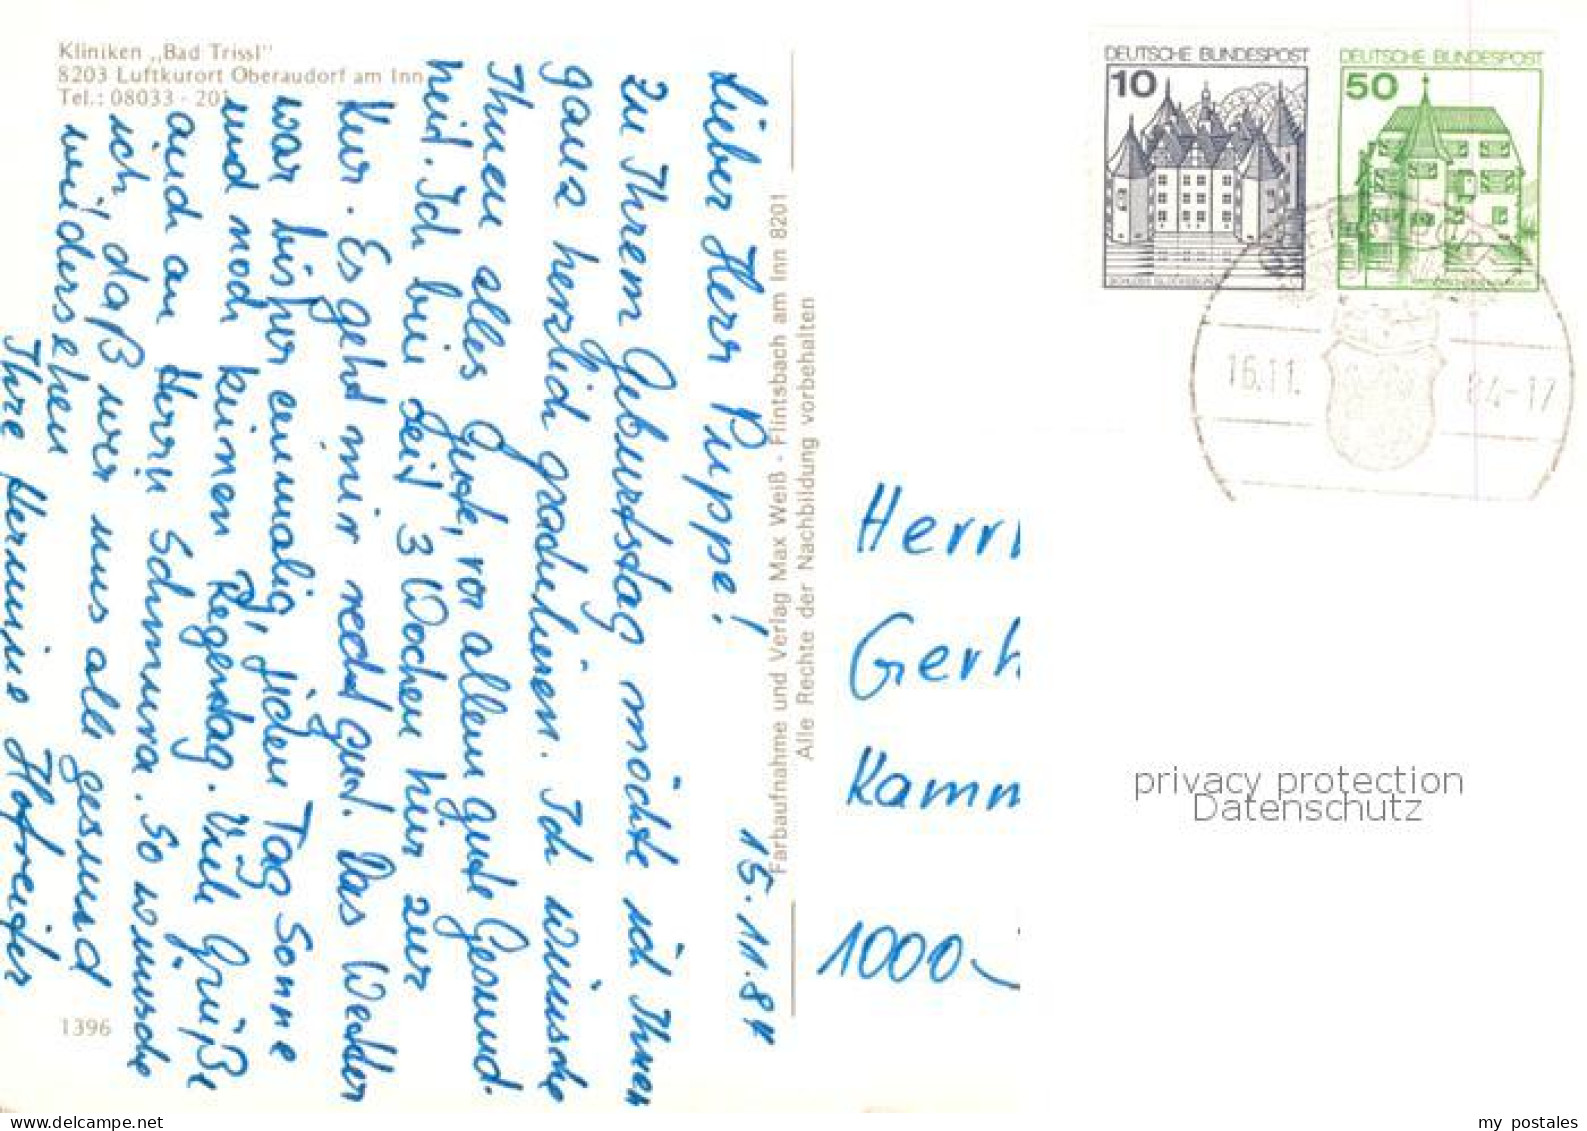 Kliniken „Bad Trissl"
8203 Luftkurort Oberaudorf am Inn
Tel.: 08033 - 201
15.11.84
Lieber Herr Puppe!
Zu Ihrem Geburtstag möchte ich Ihnen
ganz herzlich gratulieren. Ich wünsche
Ihnen alles Gute, vor allem gute Gesund-
heit. Ich bin seit 3 Wochen hier zur
Kur. Es geht mir recht gut. Das Wetter
war bisher einmalig, jeden Tag Sonne
und noch keinen Regentag. Viele Grüße
auch an Herrn Schnurra. So wünsche
ich, daß wir uns alle gesund
wiedersehen
Ihre Hermine Hofreiter
1396
Farbaufnahme und Verlag Max Weiß - Flintsbach am Inn 8201
Alle Rechte der Nachbildung vorbehalten
DEUTSCHE BUNDESPOST
10
SCHLOSS GLÜCKSBURG
DEUTSCHE BUNDESPOST
50
16.11. 84-17
Herrn
Gerh
Kamm
1000
privacy protection
Datenschutz
delcampe.net
my_postales